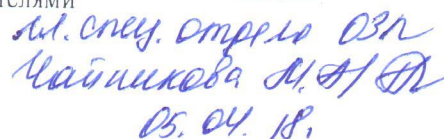 телями
гл. спец. отдела ОЗП
Чайникова М.А.
05.04.18.